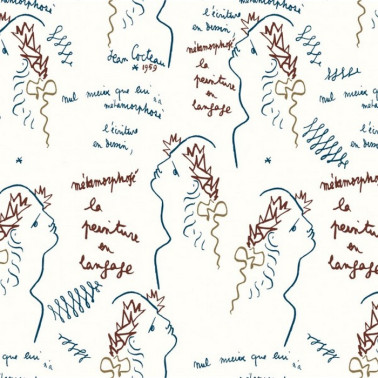 métamorphosé
l'écriture
en dessin,
Jean Cocteau
* 1959
métamorphosé
la
peinture
en
langage
métamorphosé
nul mieux que lui n'a
métamorphosé
l'écriture
en dessin,
nul mieux que lui n'a
métamorphosé
l'écriture
en dessin,
métamorphosé
la
peinture
en
langage
métamorphosé
la
peinture
en
langage
que lui n'a
nul mieux que lui n'a